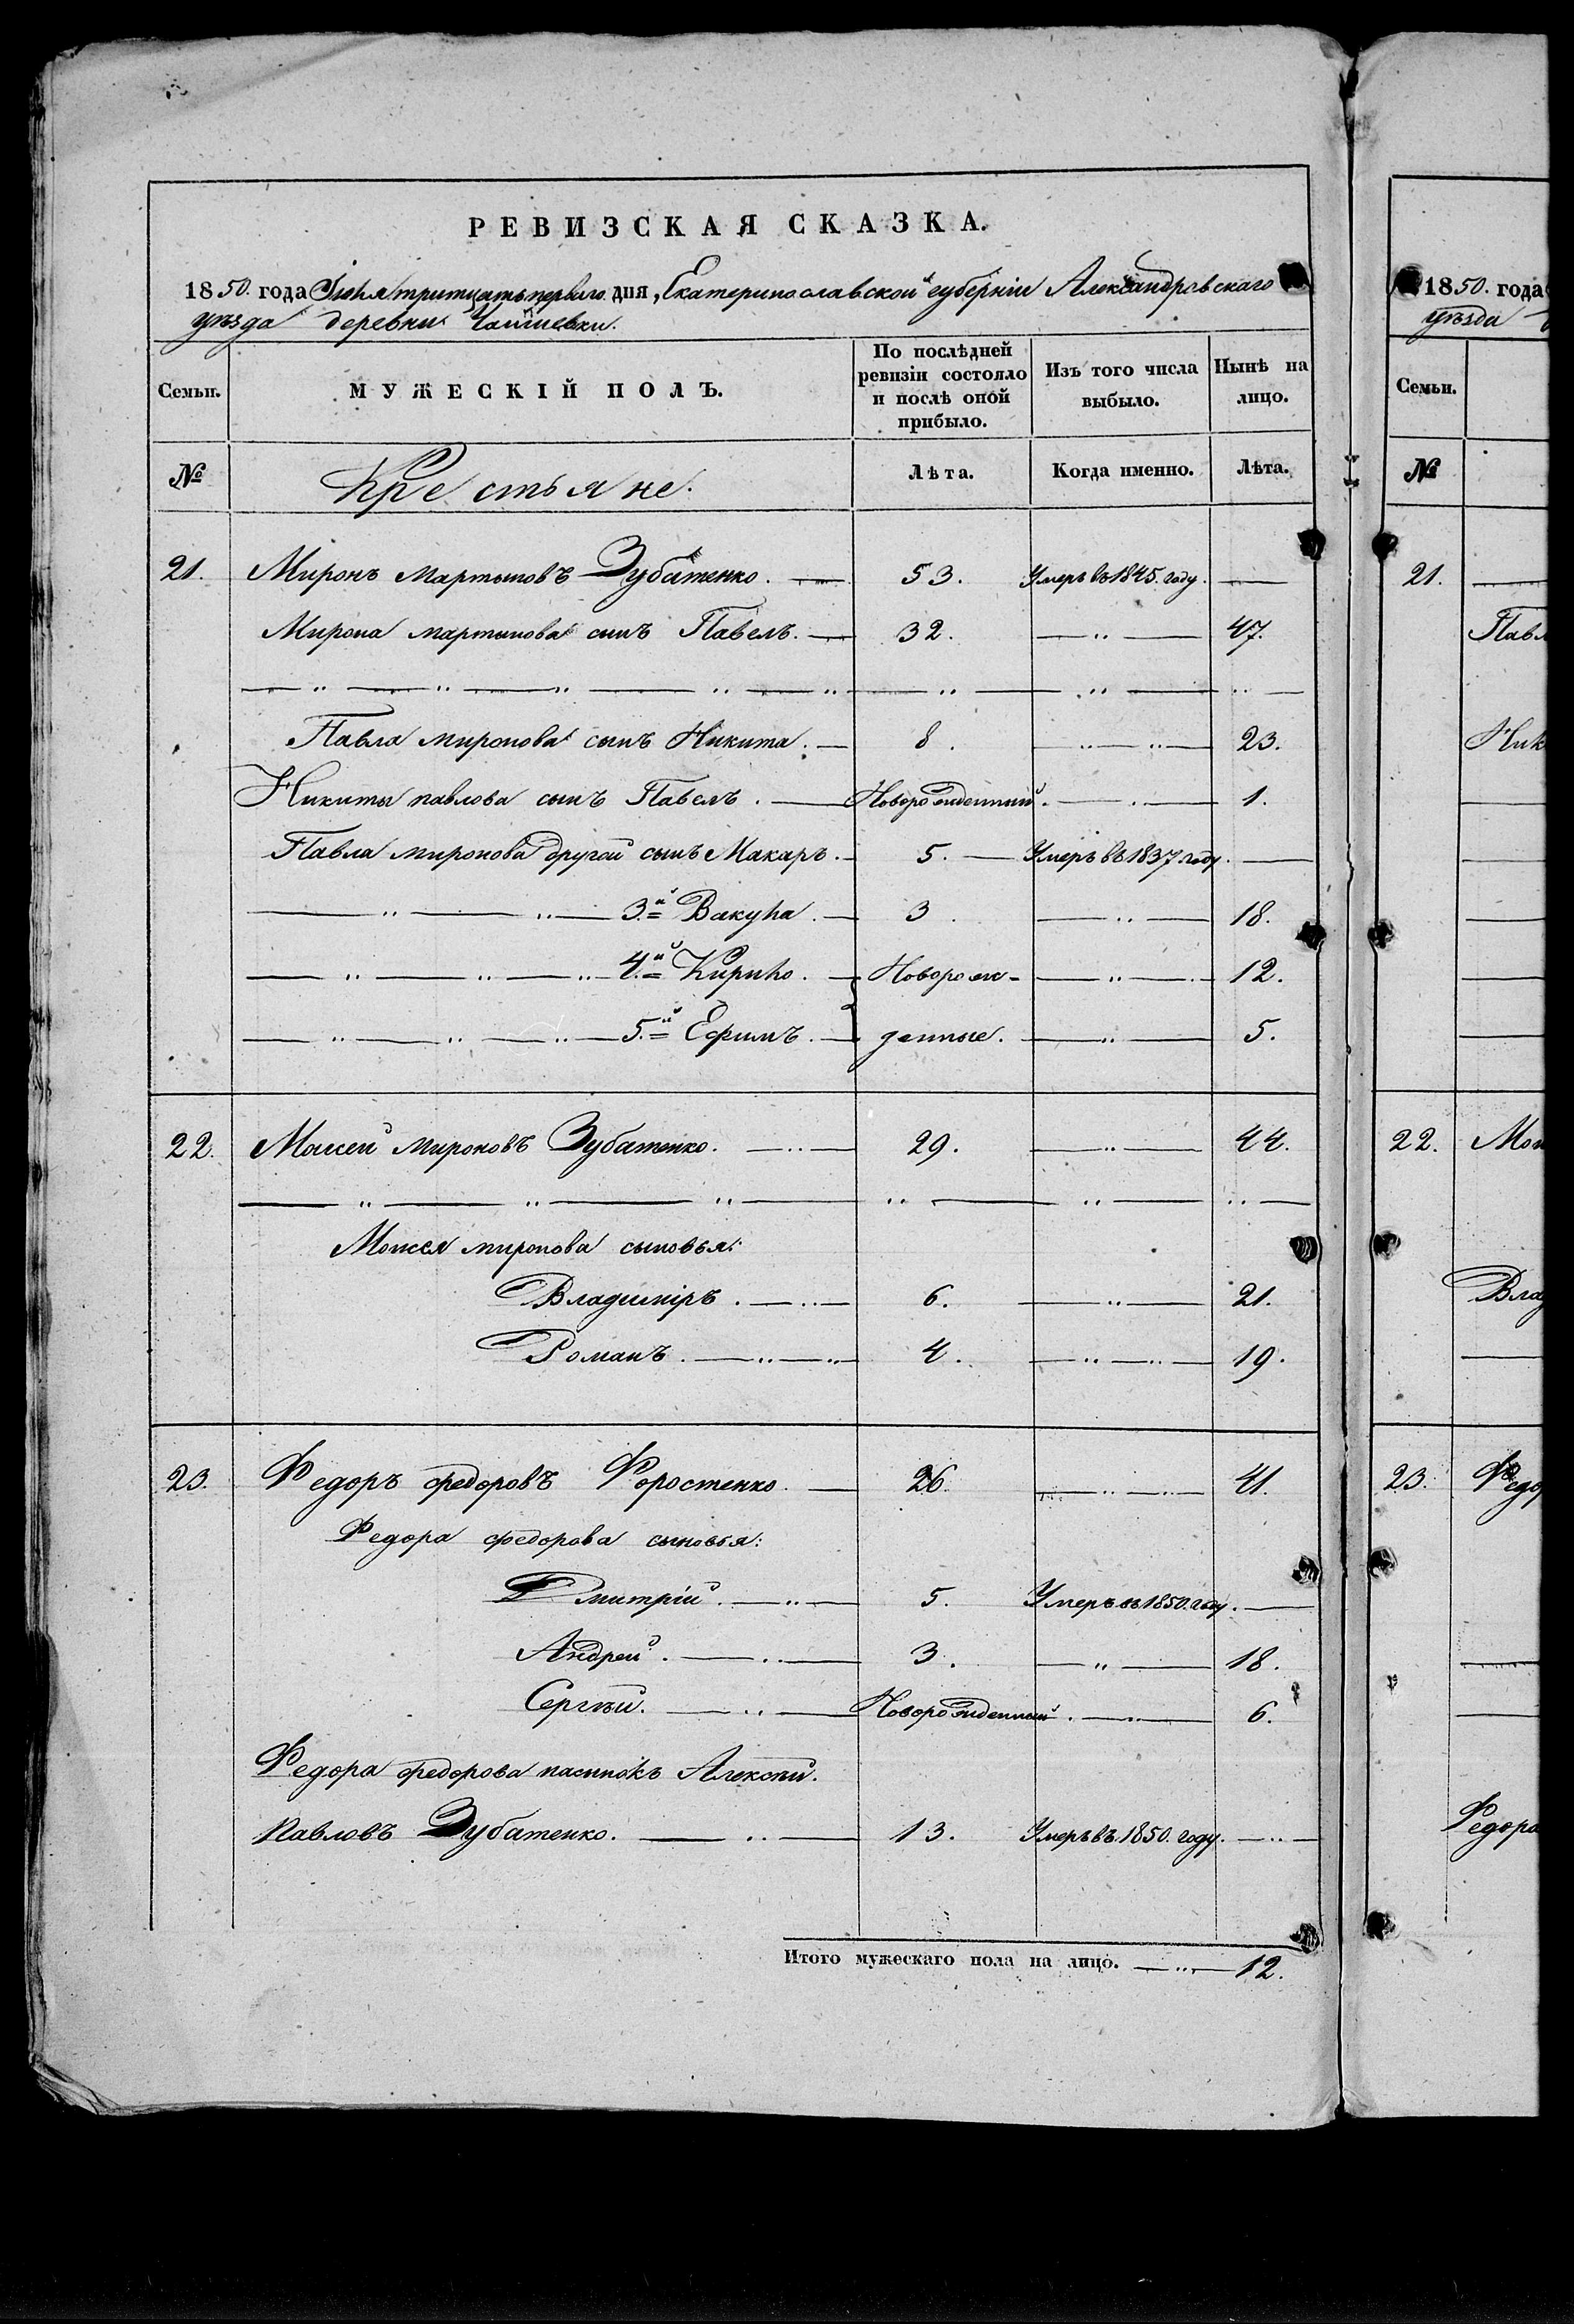 РЕВИЗСКАЯ СКАЗКА.
1850. года Іюля тритцать перваго дня, Екатеринославской губерніи Александровскаго
уѣзда деревни
Семьи. МУЖЕСКІЙ ПОЛЪ. По послѣдней ревизіи состояло и послѣ оной прибыло. Изъ того числа выбыло. Нынѣ на лицо.
№ Крестьяне. Лѣта. Когда именно. Лѣта.
21. Миронъ мартыновъ Зубатенко. 53. Умеръ въ 1845. году.
Мирона мартынова сынъ Павелъ. 32. 47.
Павла миронова сынъ Никита. 8. 23.
Никиты павлова сынъ Павелъ. Новорожденный. 1.
Павла миронова другой сынъ Макаръ. 5. Умеръ въ 1837 году.
3.й Вакула. 3. 18.
4.й Кирило. Новорож- 12.
5.й Ефимъ. денные. 5.
22. Моисей мироновъ Зубатенко. 29. 44.
Моисея миронова сыновья:
Владиміръ. 6. 21.
Романъ. 4. 19.
23. Федоръ федоровъ Форостенко. 26. 41.
Федора федорова сыновья:
Дмитрій. 5. Умеръ въ 1850. году.
Андрей. 3. 18.
Сергѣй. Новорожденный. 6.
Федора федорова пасынокъ Алексѣй.
павловъ Зубатенко. 13. Умеръ въ 1850. году.
Итого мужескаго пола на лицо. 12.
1850. года
уѣзда
Семьи.
№
21.
22.
23.
Федора